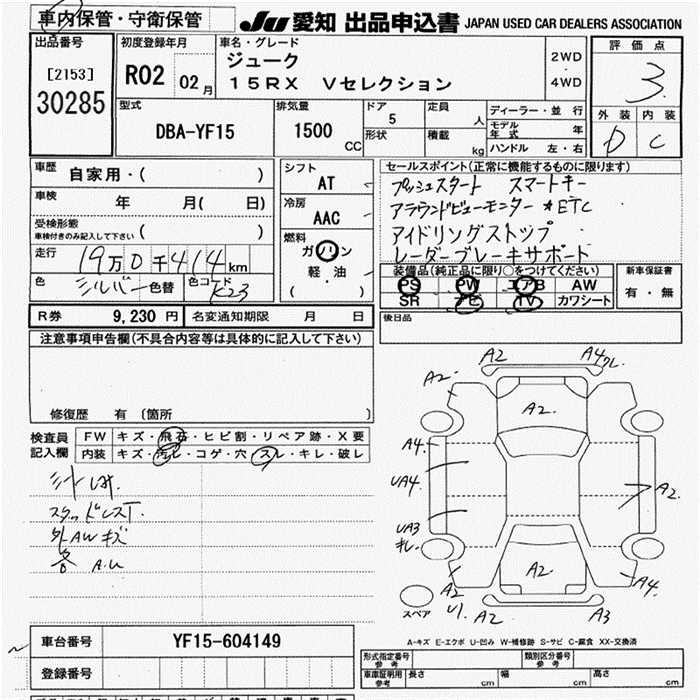 車内保管・守衛保管 JU 愛知 出品申込書 JAPAN USED CAR DEALERS ASSOCIATION
出品番号 初度登録年月 車名・グレード 評価点
[2153] R02 02月 ジューク 2WD・4WD 3
30285 15RX Vセレクション 外装 内装
D C
型式 排気量 ドア 定員 ディーラー・並行
DBA-YF15 1500 CC 5 人 モデル年式 年
形状 積載 kg ハンドル 左・右
車歴 自家用・( ) シフト AT セールスポイント(正常に機能するものに限ります)
車検 年 月( 日) 冷房 AAC プッシュスタート スマートキー
受検形態 ( ) アラウンドビューモニター *ETC
車検付きのみ記入して下さい
走行 19万0千414km 燃料 ガソリン アイドリングストップ
色 シルバー 色替 色コード K23 軽・油 レーダーブレーキサポート
( ) 装備品(純正品に限り○をつけてください) 新車保証書
PS PW エアB AW 有・無
SR ナビ TV カワシート
R券 9,230円 名変通知期限 月 日 後日品
注意事項申告欄(不具合内容等は具体的に記入して下さい)
修復歴 有 〔箇所 〕
検査員記入欄 FW キズ・飛石・ヒビ割・リペア跡・X要
内装 キズ・汚レ・コゲ・穴・スレ・キレ・破レ
スタッドレス
外AWキズ
各 A.U
A2 A4 ワレ
A2
A2
A4
UA4
A2
UA3
キレ
A2
A2 A4
U1
スペア A2 A3
A-キズ E-エクボ U-凹み W-補修跡 S-サビ C-腐食 XX-交換済
車台番号 YF15-604149
登録番号
形式指定番号 参考 類別区分番号 参考
車庫証明用 参考 長さ cm 幅 cm 高さ cm